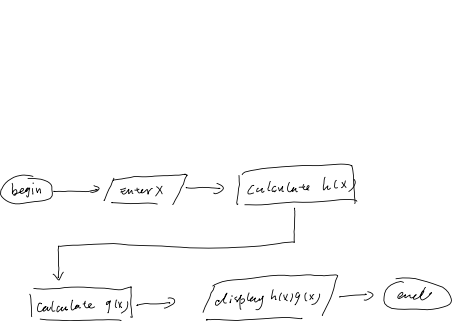 begin
enter X
Calculate h(x)
Calculate g(x)
display h(x)g(x)
end